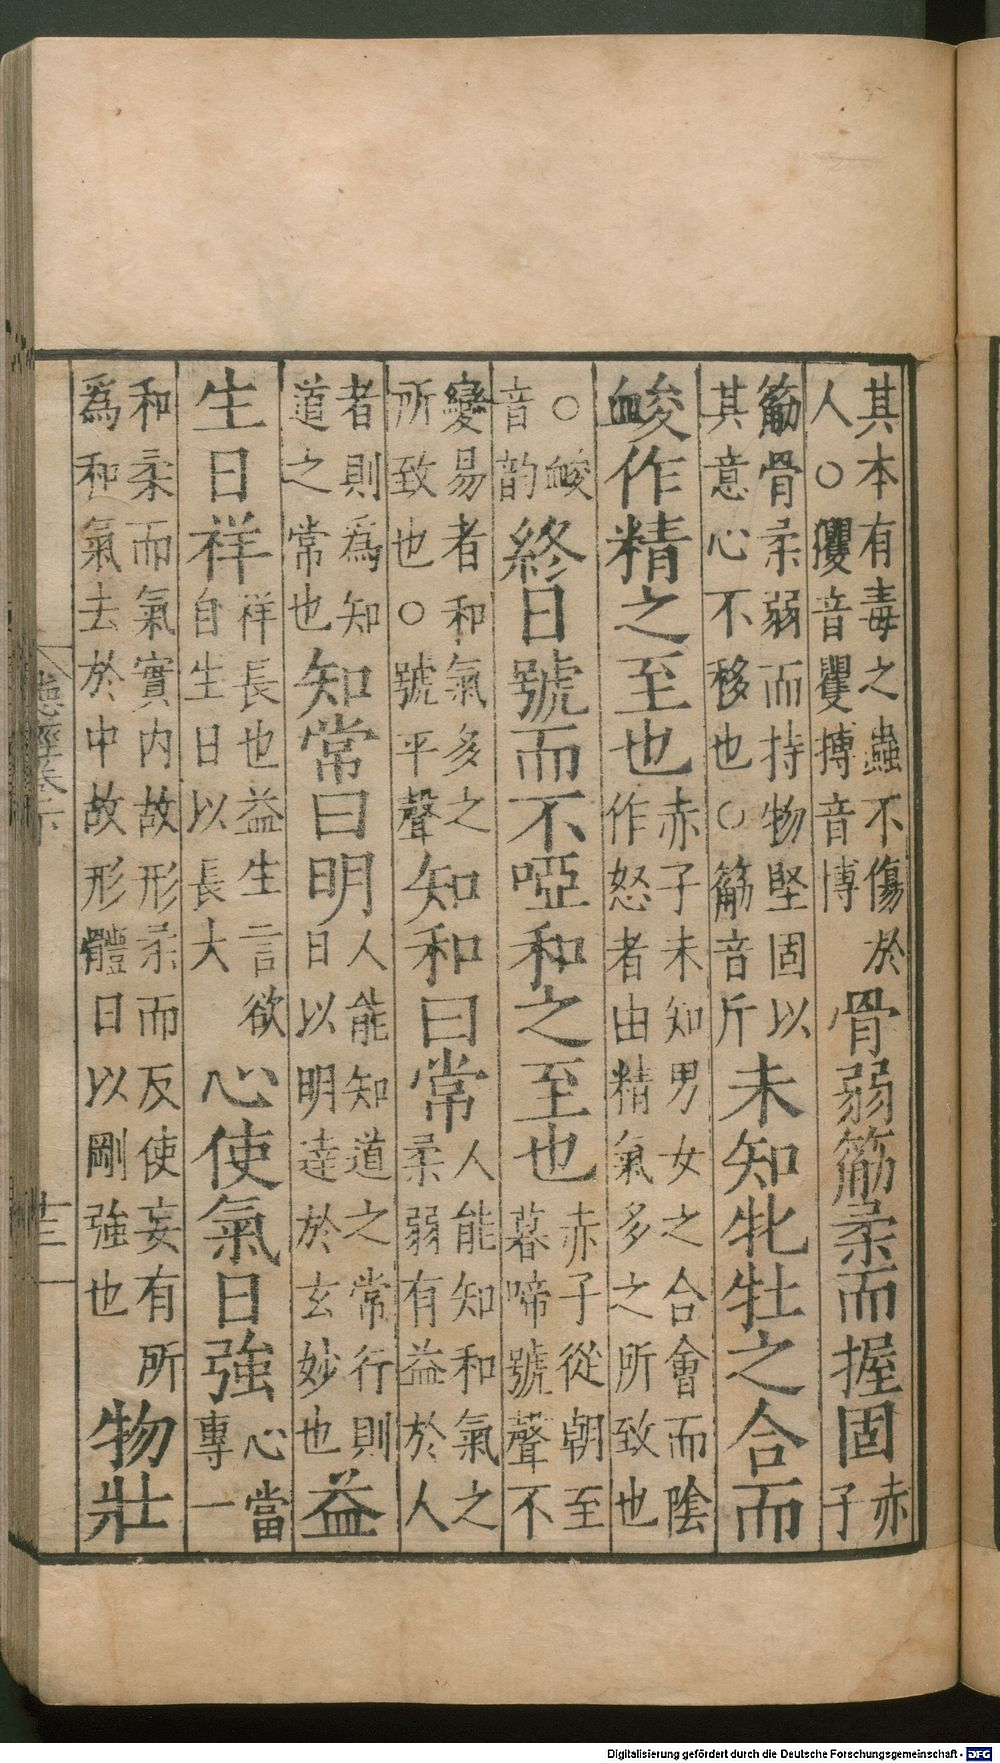 其本有毒之蟲不傷於
人○玃音矍搏音博
骨弱筋柔而握固
赤
子
筋骨柔弱而持物堅固以
其意心不移也○筋音斤
未知牝牡之合而
䘒作精之至也
赤子未知男女之合會而陰
作怒者由精氣多之所致也
○䘒
音韵
終日號而不啞和之至也
赤子從朝至
暮啼號聲不
變易者和氣多之
所致也○號平聲
知和曰常
人能知和氣之
柔弱有益於人
者則爲知
道之常也
知常曰明
人能知道之常行則
日以明達於玄妙也
益
生日祥
祥長也益生言欲
自生日以長大
心使氣日強
心當
專一
和柔而氣實内故形柔而反使妄有所
爲和氣去於中故形體日以剛強也
物壯
德經卷下
Digitalisierung gefördert durch die Deutsche Forschungsgemeinschaft - DFG